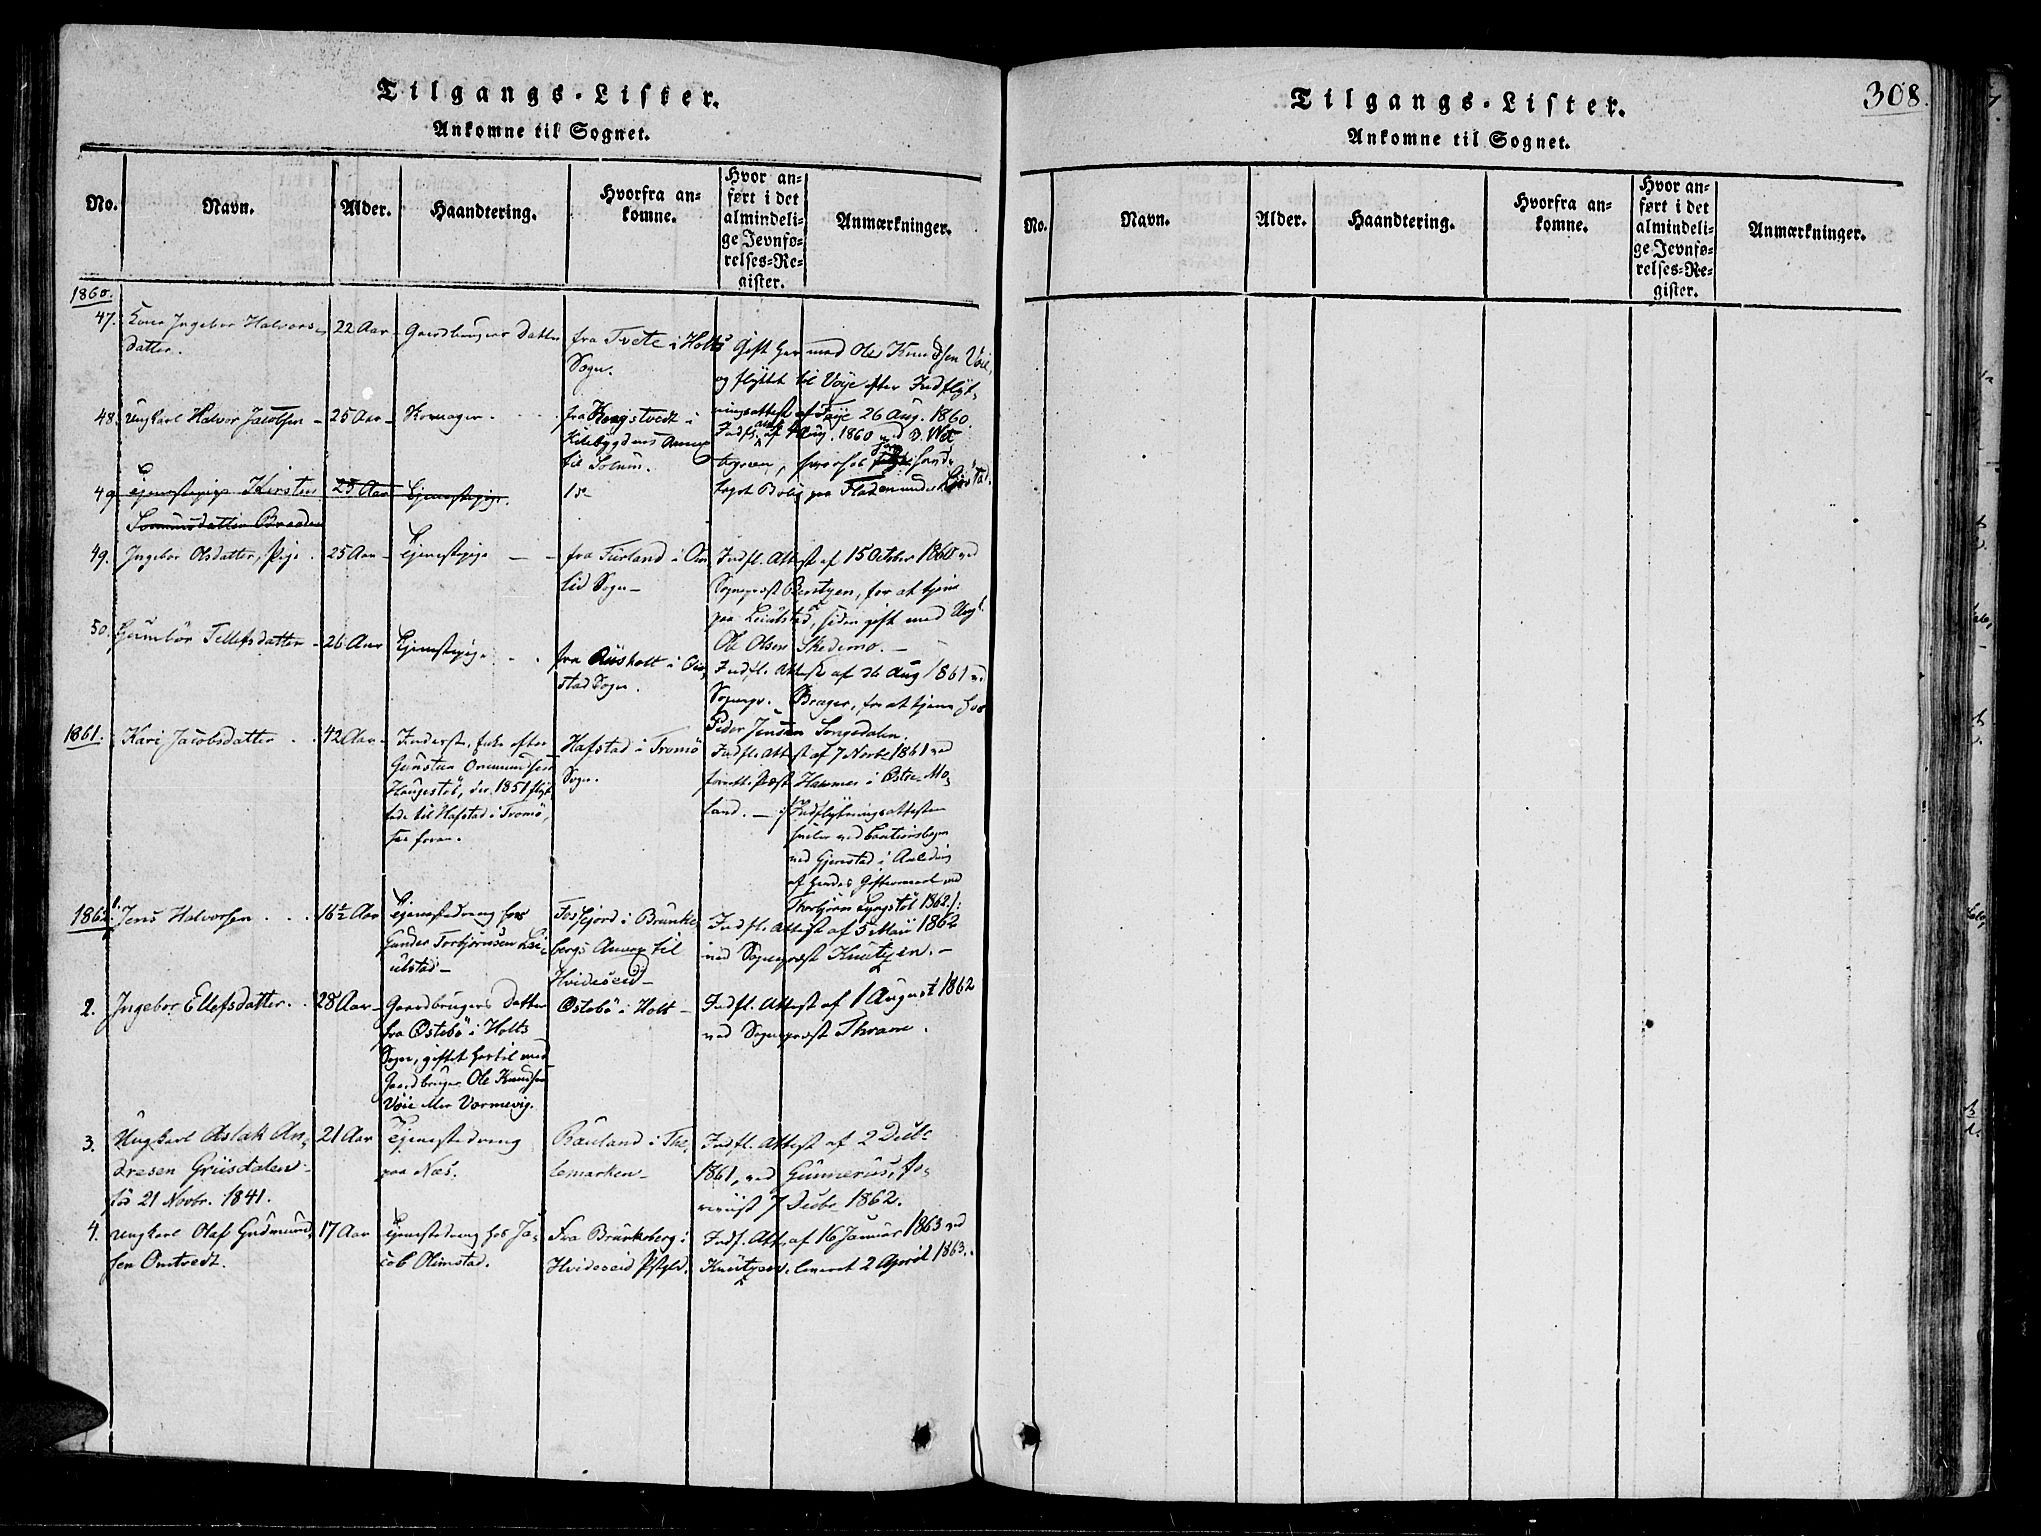 Tilgangs-Lister.
Ankomne til Sognet.
No.
Navn.
Alder.
Haandtering.
Hvorfra an-
komne.
Hvor an-
ført i det
almindeli-
ge Jevnfø-
relses-Re-
gister.
Anmærkninger.
1860.
47.
Kone Ingebor Halvors-
datter.
22 Aar
Gaardbrugers Datter
fra Tvete i Holts
Sogn.
Gift her med Ole Knudsen Voie,
og flyttet til Voie efter Indflyt-
ningsattest af Faye 26 Aug. 1860.
48.
Ungkarl Halvor Jacobsen
25 Aar
fra Kragstvedt i
Eidebygdens Annex
til Solum.
Indfl. att. af 4 Aug. 1860 ved
Flaten under
49.
Tjenestepige Kirsten
25 Aar
Tjenestepige.
49.
Ingebor Olsdatter, Pige
25 Aar
Tjenestepige
fra Furland i Om-
lid Sogn
Indfl. Attest af 15 October 1860 ved
Sognepræst Berntzen, for at tjene
paa Leiulstad, siden gift med Ungk.
Ole Olsen Skedemo.
50.
Gunbor Tellefsdatter
26 Aar
Tjenestepige
fra Riisholt i Øie-
stad Sogn.
Indfl. Attest af 26 Aug 1861 ved
Sognepr. Brager, for at tjene hos
Peder Jensen Songedalen.
1861.
Kari Jacobsdatter
42 Aar
Inderst. Enke efter
Gunstein Onnundsen
Haugestöl, der 1851 flyt-
tede til Hafstad i Tromö,
see foran.
Hafstad i Tromö
Sogn.
Indfl. Attest af 7 Novbr 1861 ved
Præst Hammer i Østre Mo-
land. — /: Indflytningsattesten
ved
ved Gjerestad i Anledn.
af hendes Giftermaal med
Thorbjörn Lyngstöl 1862 :/
1862
1.
Jens Halvorsen
16½ Aar
Tjenestedreng hos
Gunder Torbjörnsen Lei-
ulstad
Fosfjord i Brunke-
bergs Annex til
Hvideseid
Indfl. Attest af 5 Maii 1862
ved Sognepræst Knutzen.
2.
Ingebor Ellefsdatter
28 Aar
Gaardbrugers Datter
fra Østebö i Holts
Sogn, giftet hertil med
Gaardbruger Ole Knudsen
Voie eller Vormevig.
Østebö i Holt
Indfl. Attest af 1 August 1862
ved Sognepræst Thrane.
3.
Ungkarl Aslak An-
dresen Gruusdalen
fød 21 Novbr. 1841.
21 Aar
Tjenestedreng
paa Næs.
Rauland i The-
lemarken
Indfl. Attest af 2 Decbr
1861, ved Gunnerus, fo-
reviist 7 Decbr 1862.
4.
Ungkarl Olaf Gudmund-
sen Omtvedt.
17 Aar
Tjenestedreng hos Ja-
cob Olimstad.
Fra Brunkeberg i
Hvideseid Præstgjeld.
Indf. Att. af 16 Januar 1863 ved
Knutzen, leveret 2 April 1863.
308.
Tilgangs-Lister.
Ankomne til Sognet.
No.
Navn.
Alder.
Haandtering.
Hvorfra an-
komne.
Hvor an-
ført i det
almindeli-
ge Jevnfø-
relses-Re-
gister.
Anmærkninger.